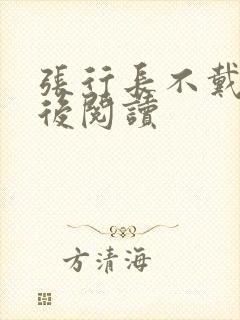 張行長不戴
後閱讀
方清海